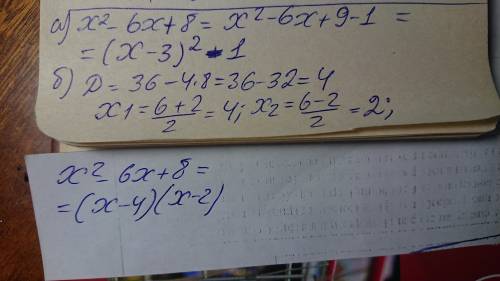 а) x² - 6x + 8 = x² - 6x + 9 - 1 =
= (x - 3)² - 1
б) D = 36 - 4·8 = 36 - 32 = 4
x1 = (6 + 2)/2 = 4; x2 = (6 - 2)/2 = 2;
x² - 6x + 8 =
= (x - 4)(x - 2)